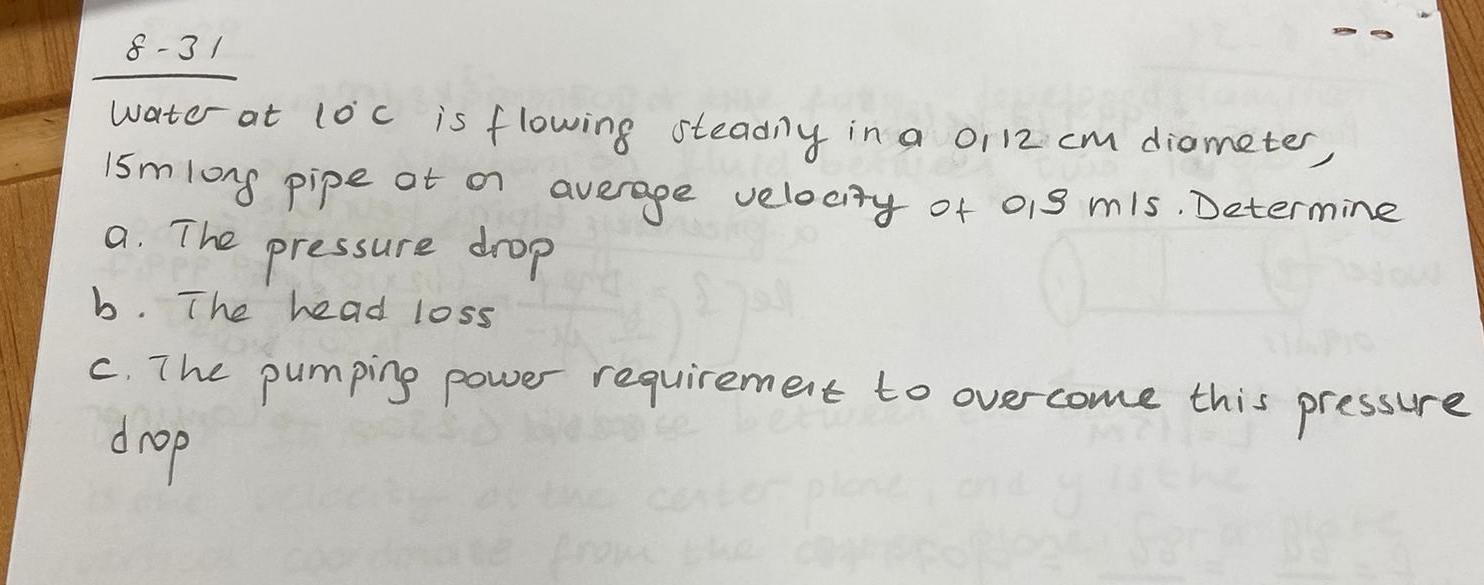 8-31
Water at 10°C is flowing steadily in a 0,12 cm diameter,
15m long pipe at an average velocity of 0,9 m/s. Determine
a. The pressure drop
b. The head loss
c. The pumping power requirement to overcome this pressure
drop